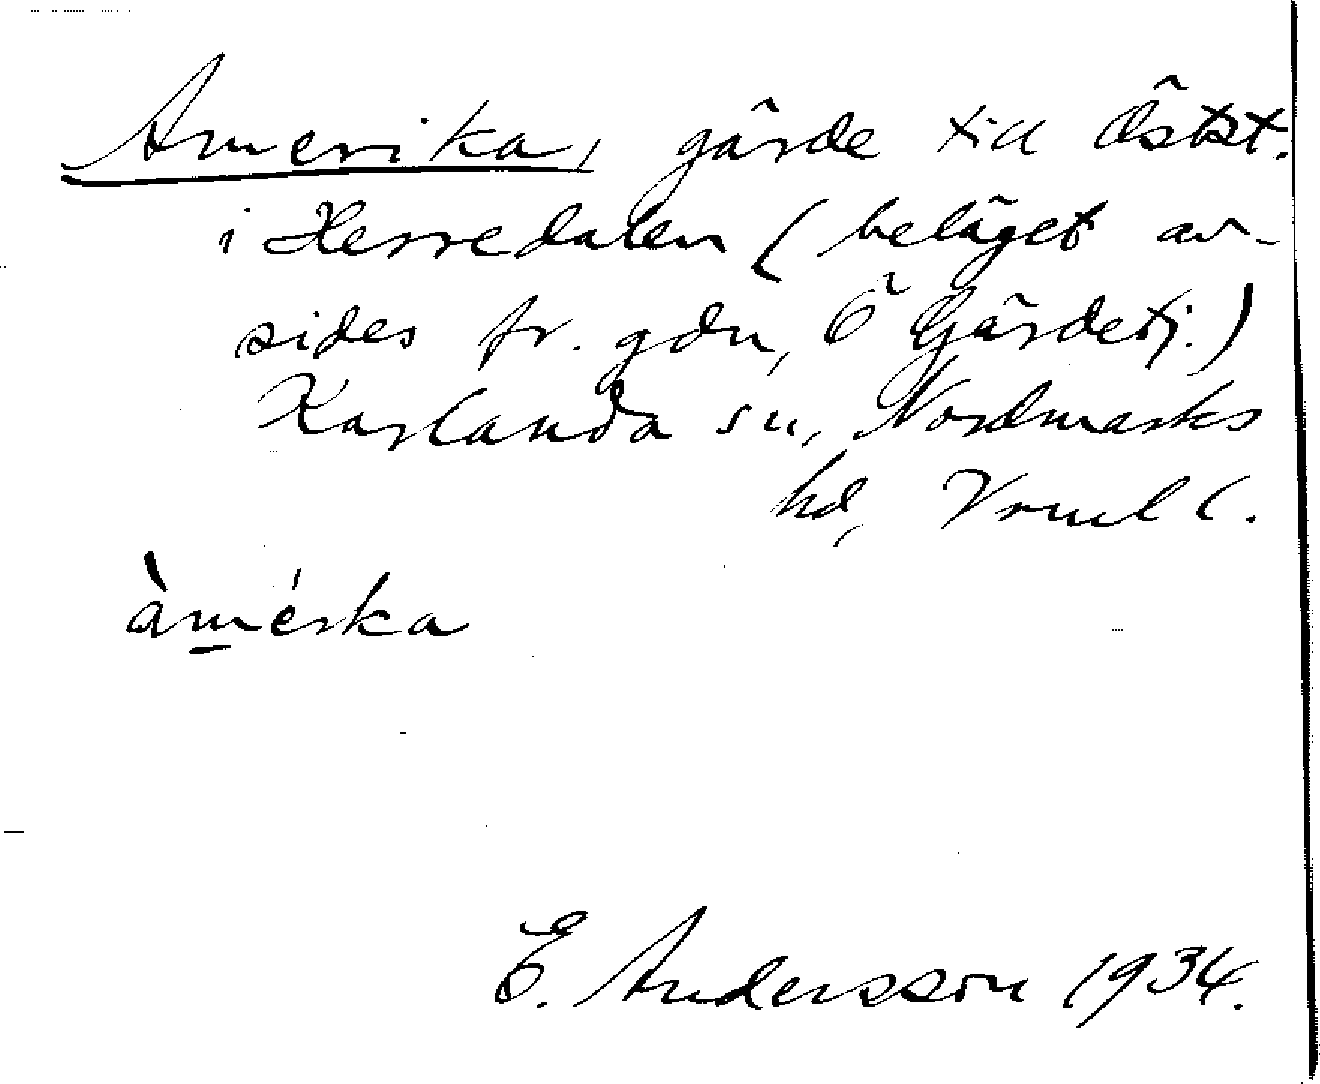 Amerika, gärde till Östst.
i Herredalen (beläget av-
sides fr. gdn, Ö Gärdetj.)
Karlanda sn, Nordmarks
hd, Vrml l.
àmérka
E. Andersson 1934.